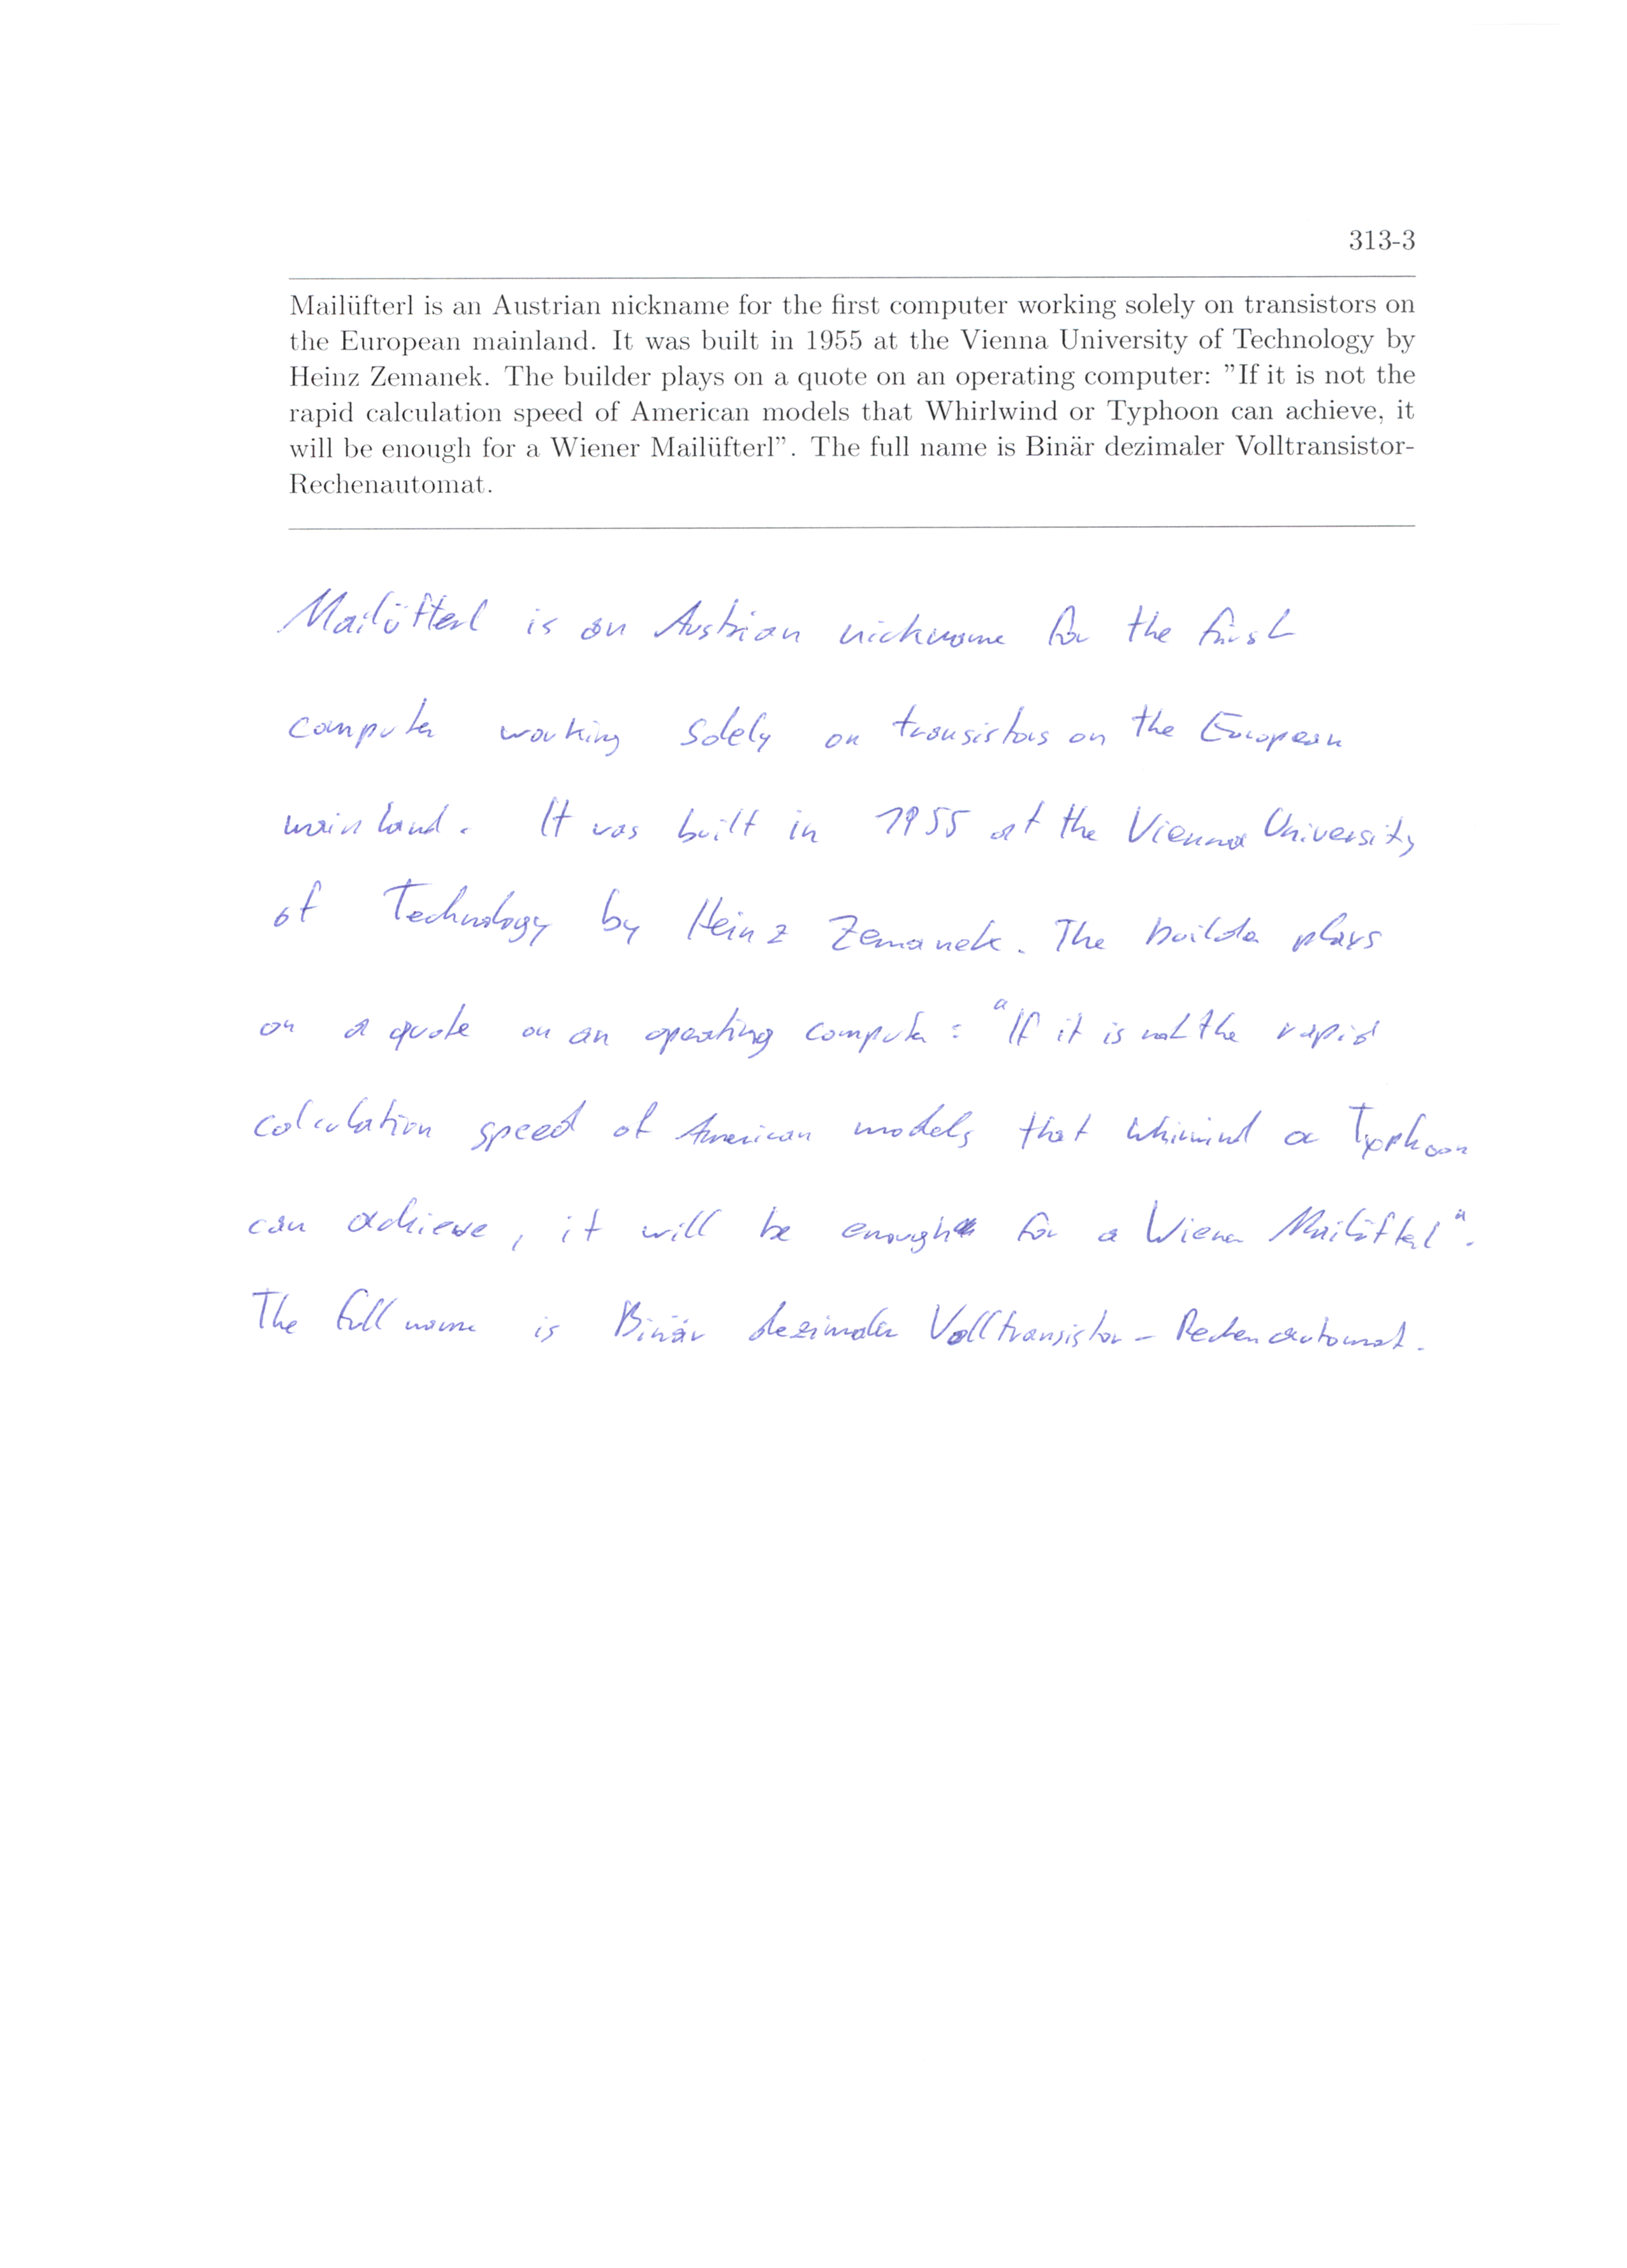 313-3
Mailüfterl is an Austrian nickname for the first computer working solely on transistors on
the European mainland. It was built in 1955 at the Vienna University of Technology by
Heinz Zemanek. The builder plays on a quote on an operating computer: "If it is not the
rapid calculation speed of American models that Whirlwind or Typhoon can achieve, it
will be enough for a Wiener Mailüfterl". The full name is Binär dezimaler Volltransistor-
Rechenautomat.
Mailüfterl is an Austrian nickname for the first
computer working solely on transistors on the European
mainland. It was built in 1955 at the Vienna University
of Technology by Heinz Zemanek. The builder plays
on a quote on an operating computer: "If it is not the rapid
calculation speed of American models that or Typhoon
can achieve, it will be enough for a Wiener Mailüfterl".
The full name is Binär dezimaler Volltransistor-Rechenautomat.